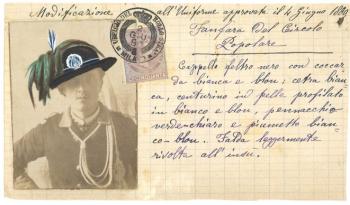 Modificazione all'Uniforme approvata il 4 Giugno
Fanfara Del Circolo
Popolare
Cappello feltro nero con coccar
da bianca e bleu; cetra bian
ca, centurino in pelle profilato
in bianco e bleu, pennacchio
verde-chiaro e piumetto bian-
co-bleu. Falda leggermente
rivolta all'insu.